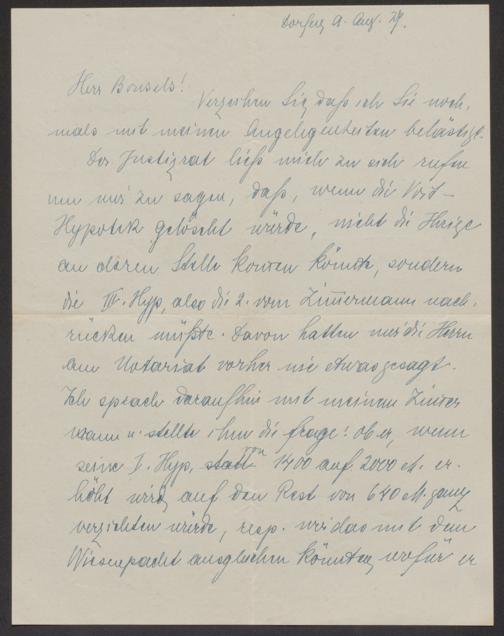 Dorfen 9. Aug. 29.
Herr Bonsels!
Verzeihen Sie, daß ich Sie noch-
mals mit meinen Angelegenheiten belästige.
Der Justizrat ließ mich zu sich rufen
um mir zu sagen, daß, wenn die Vor-
Hypotek gelöscht würde, nicht die Ihrige
an deren Stelle kommen könnte, sondern
die III. Hyp, also die 2. vom Zimmermann nach-
rücken müßte. Davon hatten mir die Herrn
am Notariat vorher nie etwas gesagt.
Ich sprach daraufhin mit meinem Zimmer
mann u. stellte ihm die Frage: ob er, wenn
seine I. Hyp. von 1400 auf 2000 M. er-
höht wird, auf den Rest von 640 M. ganz
verzichten würde, resp. wir das mit dem
Wiesenpacht ausgleichen könnten, wofür er